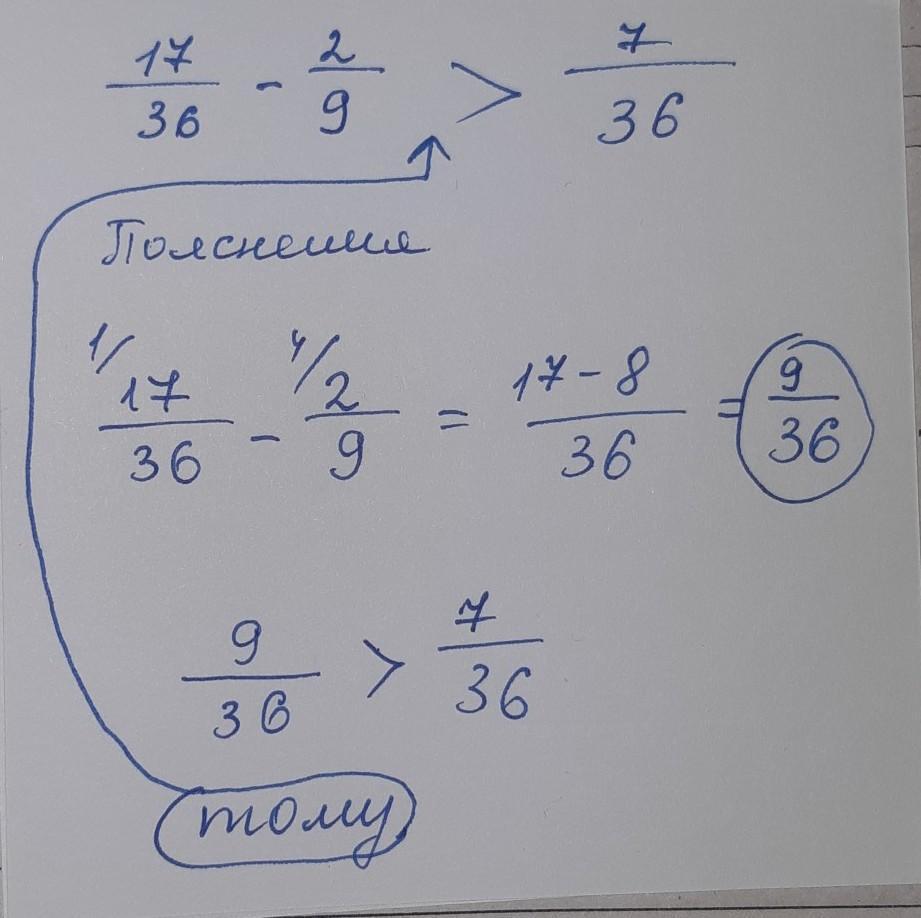 17/36 - 2/9 > 7/36
Пояснення
1/ 17/36 - 4/ 2/9 = 17-8/36 = 9/36
9/36 > 7/36
тому